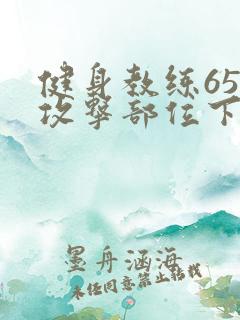 健身教练65
攻撃部位下
墨舟涵海
未经同意禁止转载